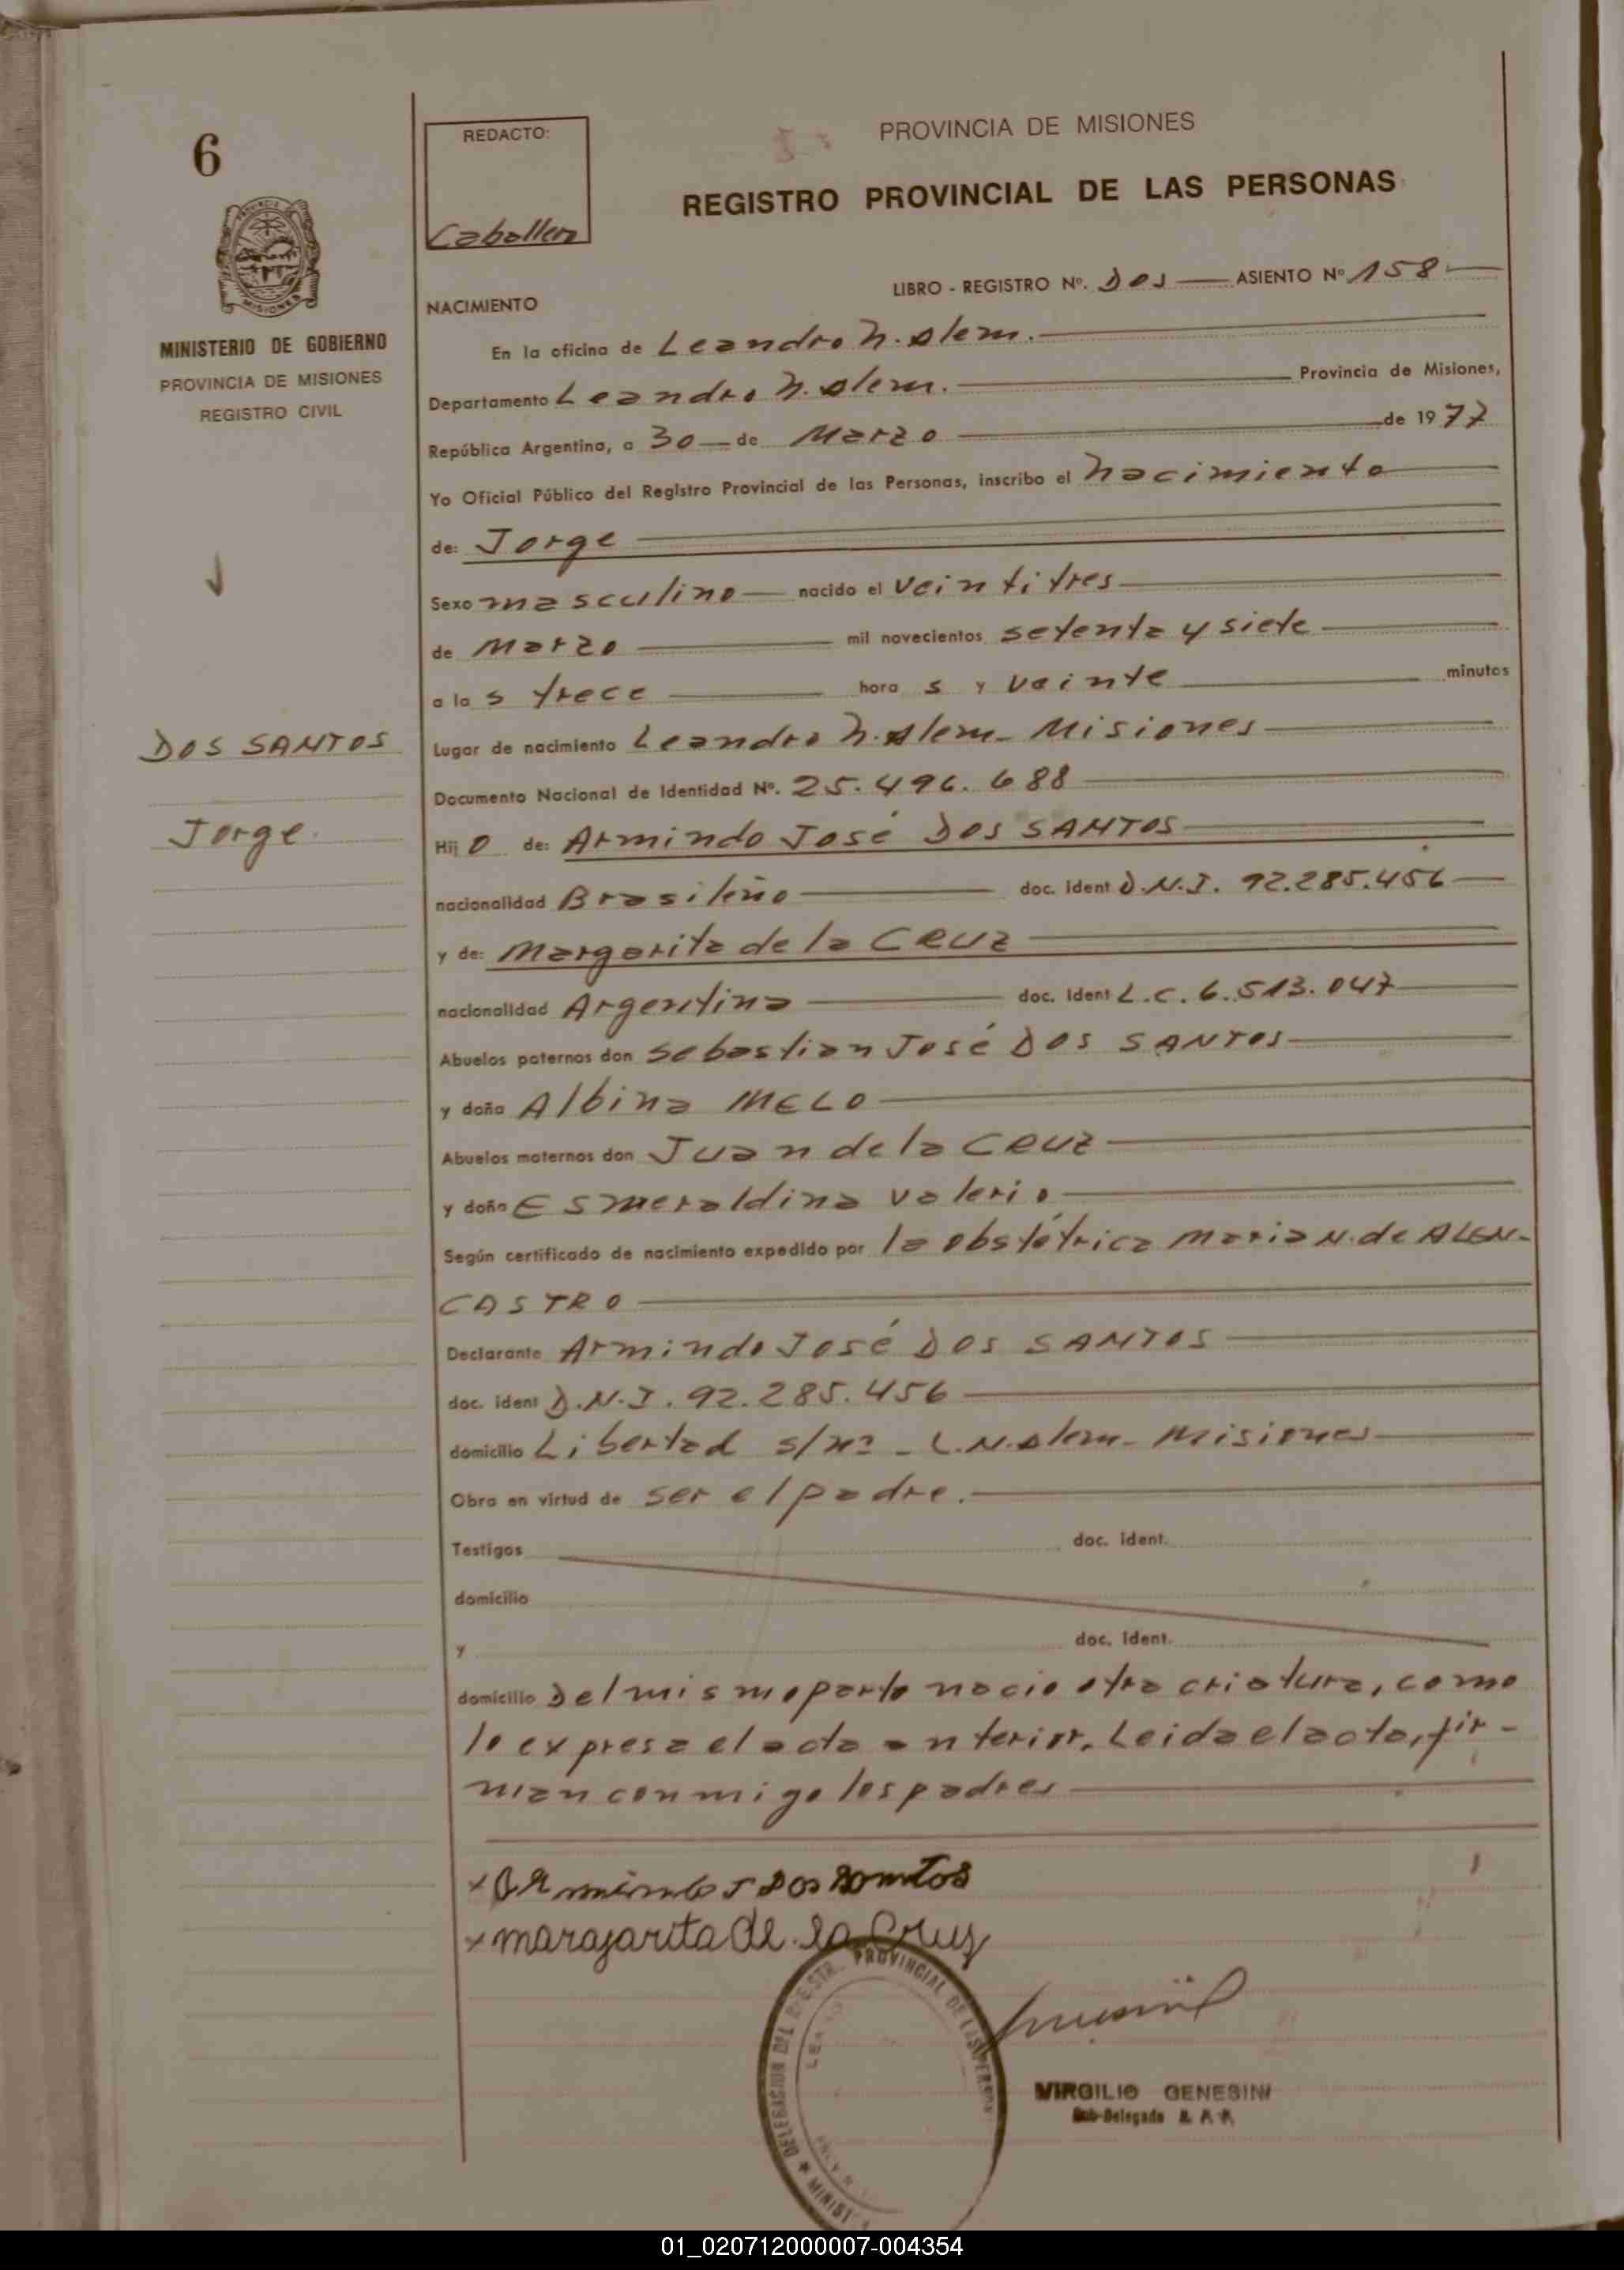 6
REDACTO:
Caballero
PROVINCIA DE MISIONES
REGISTRO PROVINCIAL DE LAS PERSONAS
MINISTERIO DE GOBIERNO
PROVINCIA DE MISIONES
REGISTRO CIVIL
LIBRO - REGISTRO Nº. Dos ASIENTO Nº 158
NACIMIENTO
En la oficina de Leandro N. Alem.
Departamento Leandro N. Alem. Provincia de Misiones,
República Argentina, a 30 de Marzo de 1977
Yo Oficial Público del Registro Provincial de las Personas, inscribo el Nacimiento
de: Jorge
Sexo masculino nacido el veintitres
de Marzo mil novecientos setenta y siete
a las trece hora s y veinte minutos
DOS SANTOS
Jorge.
Lugar de nacimiento Leandro N. Alem - Misiones
Documento Nacional de Identidad Nº. 25.496.688
Hij o de: Armindo José DOS SANTOS
nacionalidad Brasileño doc. ident D.N.I. 92.285.456
y de: Margarita de la CRUZ
nacionalidad Argentina doc. ident L.C. 6.513.047
Abuelos paternos don Sebastian José DOS SANTOS
y doña Albina MELO
Abuelos maternos don Juan de la CRUZ
y doña Esmeraldina Valerio
Según certificado de nacimiento expedido por la obstétrica Maria N. de ALEN-
CASTRO
Declarante Armindo José DOS SANTOS
doc. ident D.N.I. 92.285.456
domicilio Libertad s/nº - L.N. Alem - Misiones
Obra en virtud de ser el padre.
Testigos doc. ident.
domicilio
y doc. ident.
domicilio Del mismo parto nacio otra criatura, como
lo expresa el acta anterior. Leida el acta, fir-
man conmigo los padres
x Armindo J Dos Somtos
x marajarita de la Cruz
DELEGACION DEL REGISTR. PROVINCIAL DE LAS PERSON
VIRGILIO GENESINI
Sub-Delegado R. P. P.
01_020712000007-004354